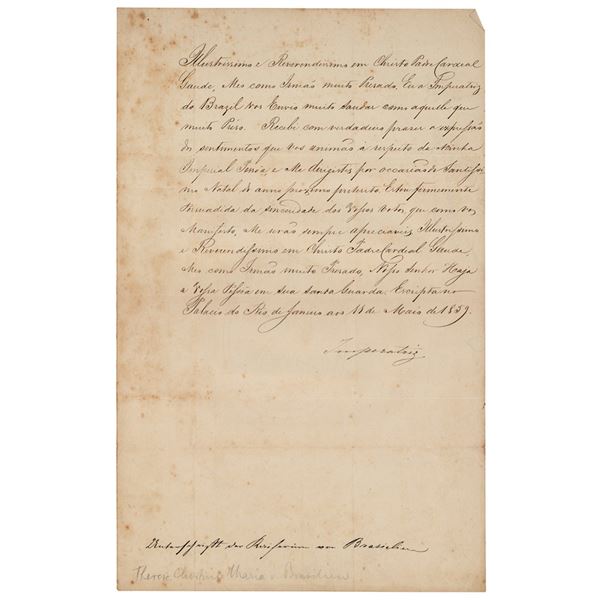 Illustrissimo e Reverendissimo em Christo Padre Cardeal
Gaude, Meo como Irmão muito Prezado, Eu a Imperatriz
do Brazil vos Envio muito saudar como aquelle que
muito Prézo. Recebi com verdadeiro prazer a expressão
do sentimentos que vos animão à respeito da Minha
Imperial Pessôa, e Me dirigistes por occasião do Santissi
mo Natal do anno proximo preterito. Estou firmemente
Persuadida da sinceridade dos Vossos votos que como vos
Manifesto, Me serão sempre apreciaveis. Illustrissimo
e Reverendissimo em Christo Padre Cardeal Gaude,
Meo como Irmão muito Prezado, Nosso Senhor Haja
a Vossa Pessôa em sua santa Guarda. Escripta no
Palacio do Rio de Janeiro aos de Maio de 1859.
Imperatriz
Unterschrift der Kaiserin von Brasilien
Theres. Christin. Maria v. Brasilien